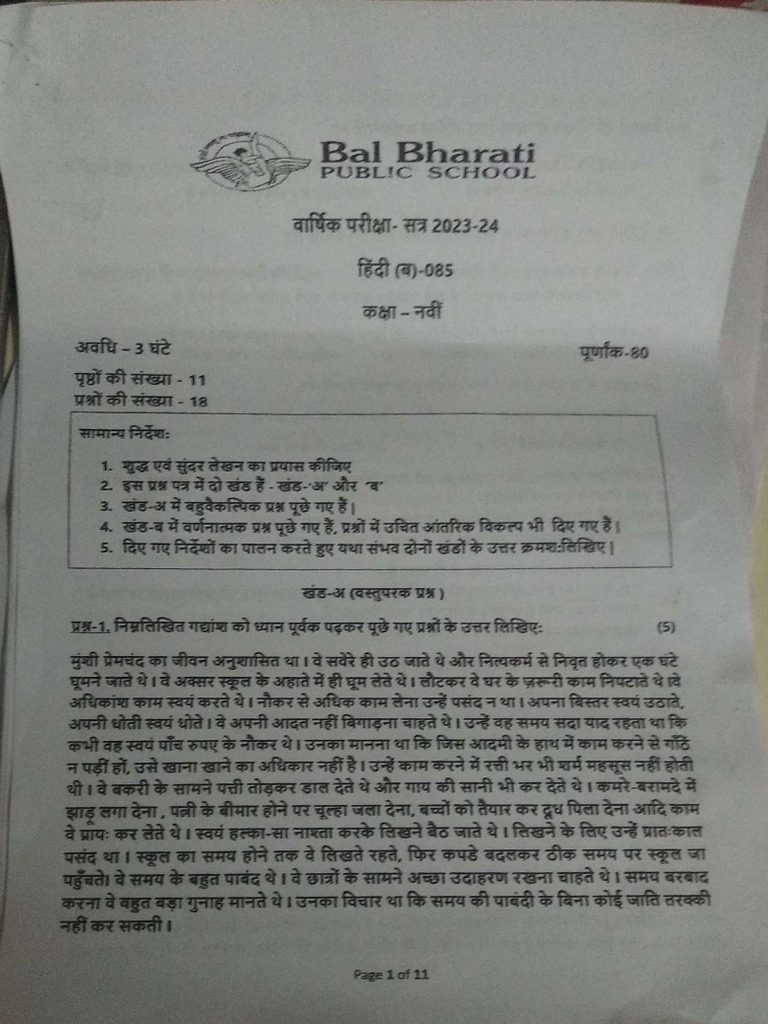 Bal Bharati
PUBLIC SCHOOL
वार्षिक परीक्षा- सत्र 2023-24
हिंदी (ब)-085
कक्षा – नवीं
अवधि – 3 घंटे
पूर्णांक-80
पृष्ठों की संख्या - 11
प्रश्नों की संख्या - 18
सामान्य निर्देश:
1. शुद्ध एवं सुंदर लेखन का प्रयास कीजिए
2. इस प्रश्न पत्र में दो खंड हैं - खंड-'अ' और 'ब'
3. खंड-अ में बहुवैकल्पिक प्रश्न पूछे गए हैं |
4. खंड-ब में वर्णनात्मक प्रश्न पूछे गए हैं, प्रश्नों में उचित आंतरिक विकल्प भी दिए गए हैं |
5. दिए गए निर्देशों का पालन करते हुए यथा संभव दोनों खंडों के उत्तर क्रमश:लिखिए |
खंड-अ (वस्तुपरक प्रश्न )
प्रश्न-1. निम्नलिखित गद्यांश को ध्यान पूर्वक पढ़कर पूछे गए प्रश्नों के उत्तर लिखिए: (5)
मुंशी प्रेमचंद का जीवन अनुशासित था । वे सवेरे ही उठ जाते थे और नित्यकर्म से निवृत होकर एक घंटे
घूमने जाते थे । वे अक्सर स्कूल के अहाते में ही घूम लेते थे । लौटकर वे घर के ज़रूरी काम निपटाते थे ।वे
अधिकांश काम स्वयं करते थे । नौकर से अधिक काम लेना उन्हें पसंद न था । अपना बिस्तर स्वयं उठाते,
अपनी धोती स्वयं धोते । वे अपनी आदत नहीं बिगाड़ना चाहते थे । उन्हें वह समय सदा याद रहता था कि
कभी वह स्वयं पाँच रुपए के नौकर थे । उनका मानना था कि जिस आदमी के हाथ में काम करने से गाँठें
न पड़ीं हों, उसे खाना खाने का अधिकार नहीं है । उन्हें काम करने में रत्ती भर भी शर्म महसूस नहीं होती
थी । वे बकरी के सामने पत्ती तोड़कर डाल देते थे और गाय की सानी भी कर देते थे । कमरे-बरामदे में
झाड़ू लगा देना , पत्नी के बीमार होने पर चूल्हा जला देना, बच्चों को तैयार कर दूध पिला देना आदि काम
वे प्रायः कर लेते थे । स्वयं हल्का-सा नाश्ता करके लिखने बैठ जाते थे । लिखने के लिए उन्हें प्रातःकाल
पसंद था । स्कूल का समय होने तक वे लिखते रहते, फिर कपडे बदलकर ठीक समय पर स्कूल जा
पहुँचते। वे समय के बहुत पाबंद थे । वे छात्रों के सामने अच्छा उदाहरण रखना चाहते थे । समय बरबाद
करना वे बहुत बड़ा गुनाह मानते थे । उनका विचार था कि समय की पाबंदी के बिना कोई जाति तरक्की
नहीं कर सकती ।
Page 1 of 11